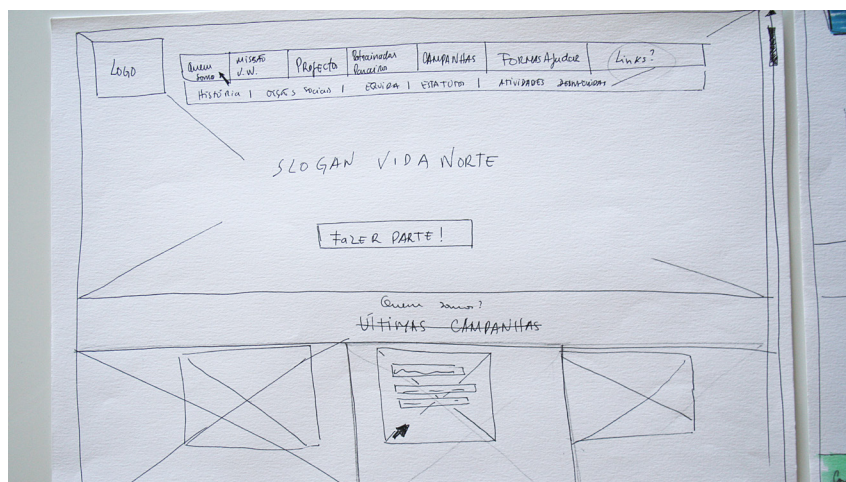 LOGO
Quem somos
MISSÃO V.N.
PROJECTO
Patrocinadores Parceiros
CAMPANHAS
FORMAS AJUDAR
Links?
HISTÓRIA | ORGÃOS SOCIAIS | EQUIPA | ESTATUTOS | ATIVIDADES DESENVOLVIDAS
SLOGAN VIDA NORTE
FAZER PARTE!
Quem somos?
ÚLTIMAS CAMPANHAS